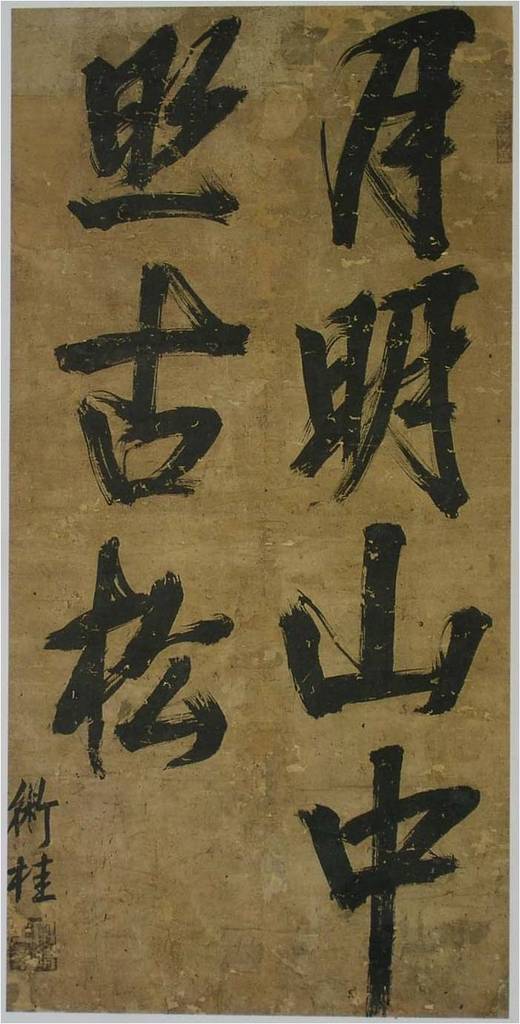 月明山中
照古松
衛桂